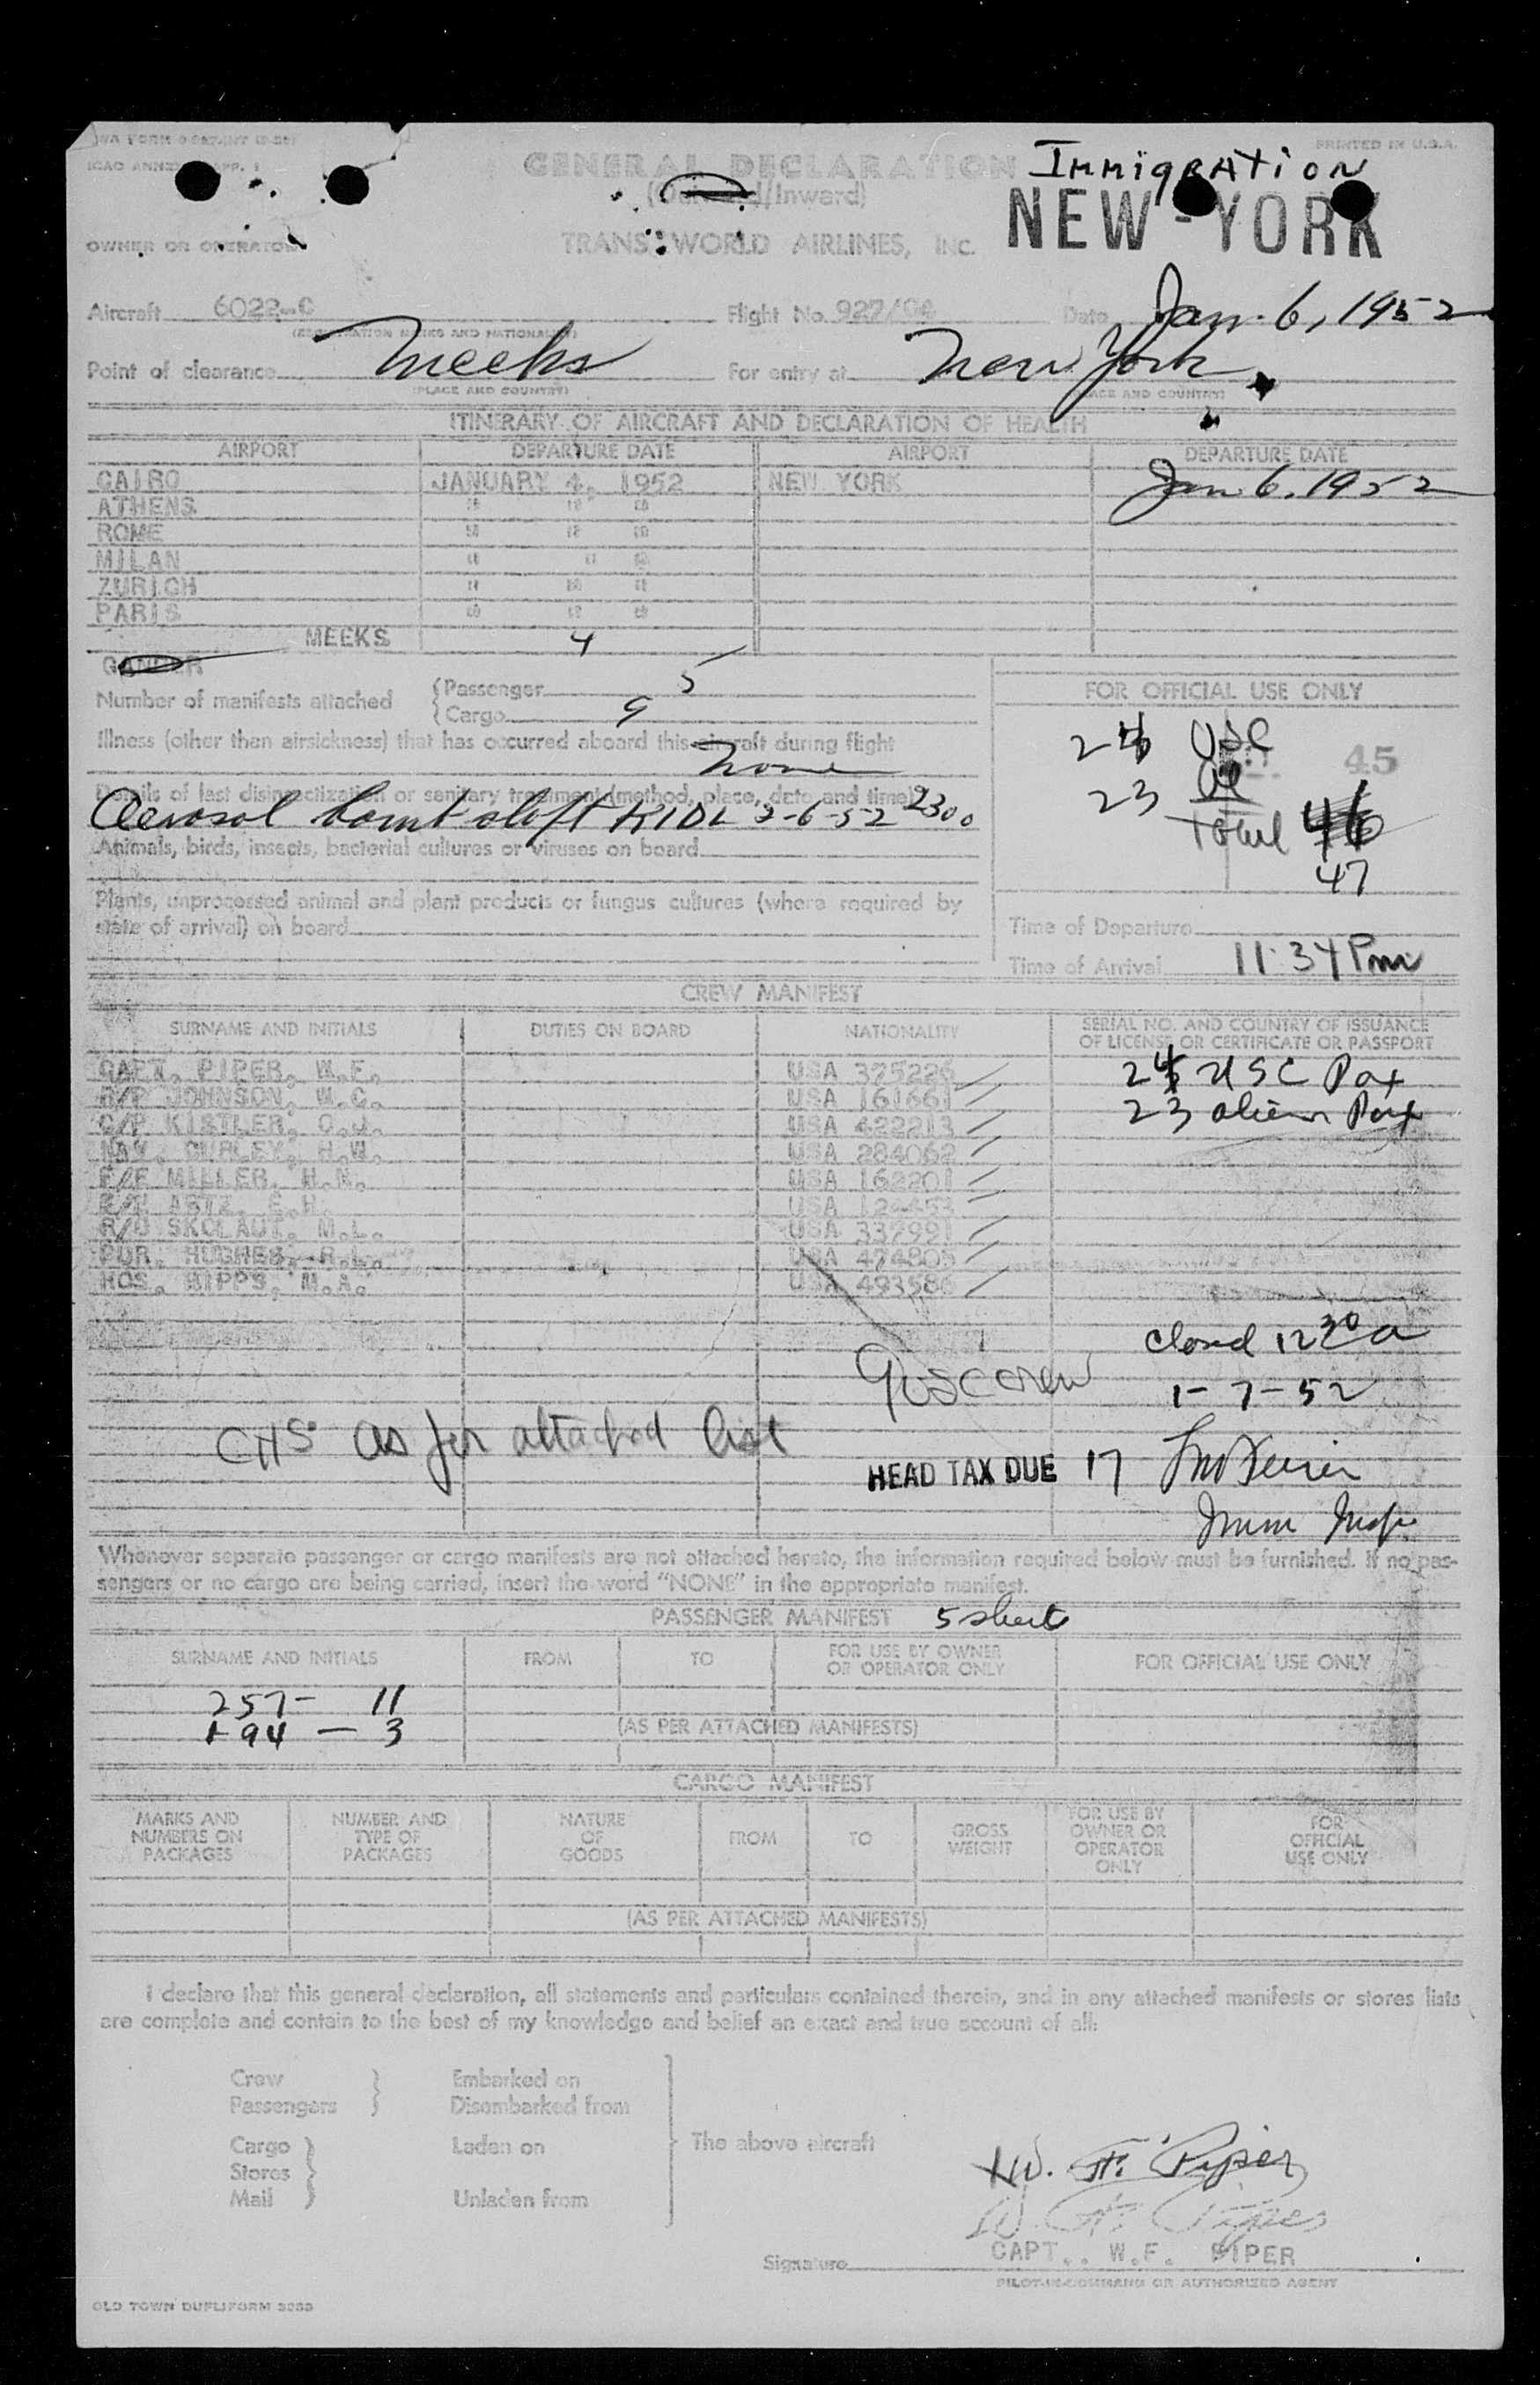 PRINTED IN U.S.A.
GENERAL DECLARATION
Immigration
(Outward/Inward)
NEW-YORK
OWNER OR OPERATOR
TRANS WORLD AIRLINES, INC.
Aircraft 6022-C Flight No. 927/04 Date Jan. 6, 1952
(REGISTRATION MARKS AND NATIONALITY)
Point of clearance Meeks For entry at New York
(PLACE AND COUNTRY) (PLACE AND COUNTRY)
ITINERARY OF AIRCRAFT AND DECLARATION OF HEALTH
AIRPORT DEPARTURE DATE AIRPORT DEPARTURE DATE
CAIRO JANUARY 4, 1952 NEW YORK Jan 6. 1952
ATHENS " " "
ROME " " "
MILAN " " "
ZURICH " " "
PARIS " " "
MEEKS 4
GANDER
Number of manifests attached Passenger 5
Cargo 9
FOR OFFICIAL USE ONLY
24 USC
45
23 al
Total 46
47
Illness (other than airsickness) that has occurred aboard this aircraft during flight
None
Details of last disinsectization or sanitary treatment (method, place, date and time)
Aerosol 2300
Animals, birds, insects, bacterial cultures or viruses on board
Plants, unprocessed animal and plant products or fungus cultures (where required by
state of arrival) on board
Time of Departure
Time of Arrival 11:34 Pm
CREW MANIFEST
SURNAME AND INITIALS DUTIES ON BOARD NATIONALITY SERIAL NO. AND COUNTRY OF ISSUANCE
OF LICENSE OR CERTIFICATE OR PASSPORT
CAPT. PIPER, W.F. USA 375226 24 USC Pax
R/P JOHNSON, W.C. USA 161661 23 alien Pax
C/P KISTLER, O.J. USA 422213
NAV. GURLEY, H.W. USA 284062
F/E MILLER, H.N. USA 162201
F/E ARTZ, E.H. USA
R/O SKOLAUT, M.L. USA 337991
PUR. HUGHES, R.L. USA 474805
HOS. HIPPS, M.A. USA 493586
closed 12 30 a
9 USC crew 1-7-52
CHS as per attached list
HEAD TAX DUE 17
Imm Insp
Whenever separate passenger or cargo manifests are not attached hereto, the information required below must be furnished. If no pas-
sengers or no cargo are being carried, insert the word "NONE" in the appropriate manifest.
PASSENGER MANIFEST 5 sheets
SURNAME AND INITIALS FROM TO FOR USE BY OWNER
OR OPERATOR ONLY FOR OFFICIAL USE ONLY
257- 11
194 - 3
(AS PER ATTACHED MANIFESTS)
CARGO MANIFEST
MARKS AND
NUMBERS ON
PACKAGES
NUMBER AND
TYPE OF
PACKAGES
NATURE
OF
GOODS
FROM
TO
GROSS
WEIGHT
FOR USE BY
OWNER OR
OPERATOR
ONLY
FOR
OFFICIAL
USE ONLY
(AS PER ATTACHED MANIFESTS)
I declare that this general declaration, all statements and particulars contained therein, and in any attached manifests or stores lists
are complete and contain to the best of my knowledge and belief an exact and true account of all:
Crew Embarked on
Passengers Disembarked from
Cargo Laden on The above aircraft
Stores
Mail Unladen from
W. F. Piper
W. F. Piper
CAPT. W.F. PIPER
Signature
PILOT-IN-COMMAND OR AUTHORIZED AGENT
OLD TOWN DUPLIFORM